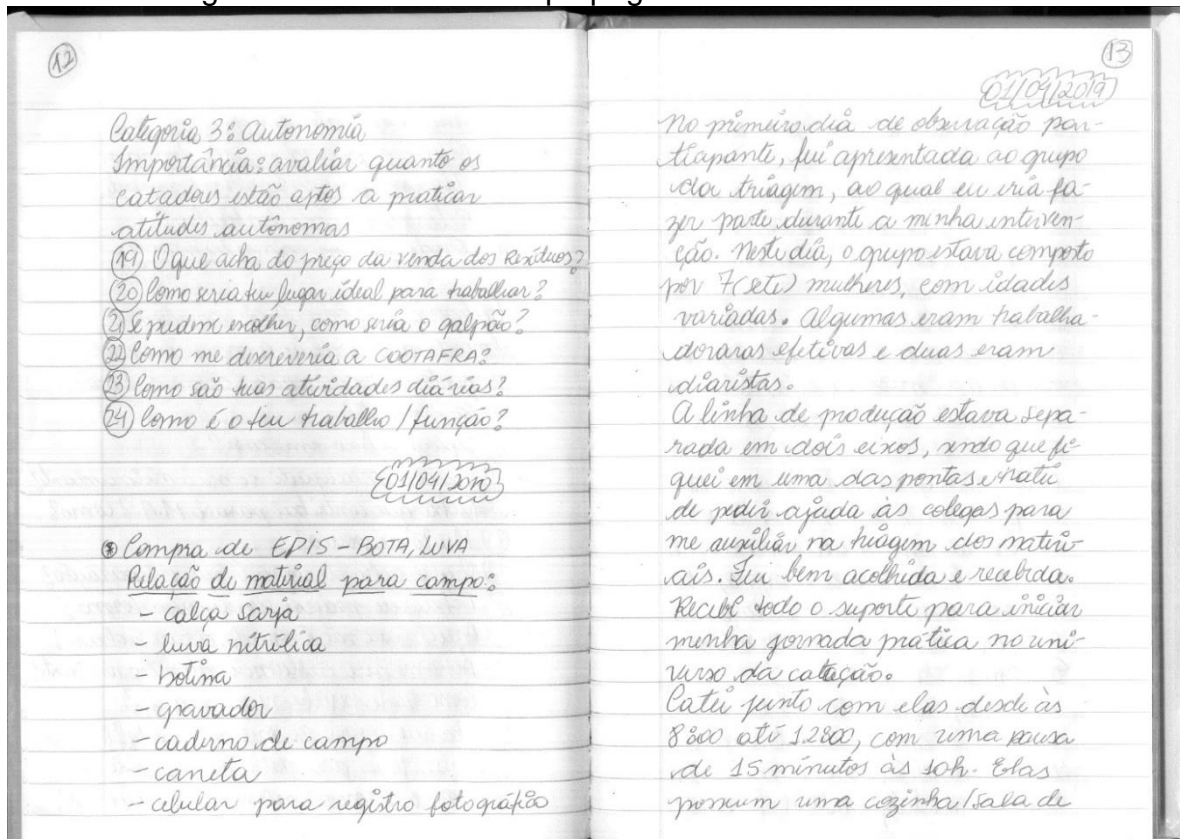 12
Categoria 3: Autonomia
Importância: avaliar quanto os
catadores estão aptos a praticar
atitudes autônomas
19 O que acha do preço da venda dos Resíduos?
20 Como seria teu lugar ideal para trabalhar?
21 Se pudesse escolher, como seria o galpão?
22 Como me descreveria a COOTAFRA?
23 Como são tuas atividades diárias?
24 Como é o teu trabalho / função?
Compra de EPIS - BOTA, LUVA
Relação de material para campo:
- calça sarja
- luva nitrílica
- botina
- gravador
- caderno de campo
- caneta
- celular para registro fotográfico
13
01/04/2019
No primeiro dia de observação par-
ticipante, fui apresentada ao grupo
da triagem, ao qual eu iria fa-
zer parte durante a minha interven-
ção. Neste dia, o grupo estava composto
por 7 (sete) mulheres, com idades
variadas. Algumas eram trabalha-
doraras efetivas e duas eram
diaristas.
A linha de produção estava sepa-
rada em dois eixos, sendo que fi-
quei em uma das pontas e tratei
de pedir ajuda às colegas para
me auxiliar na triagem dos materi-
ais. Fui bem acolhida e recebida.
Recebi todo o suporte para iniciar
minha jornada prática no uni-
verso da catação.
Catei junto com elas desde às
8:00 até 12:00, com uma pausa
de 15 minutos às 10h. Elas
possuem uma cozinha / sala de